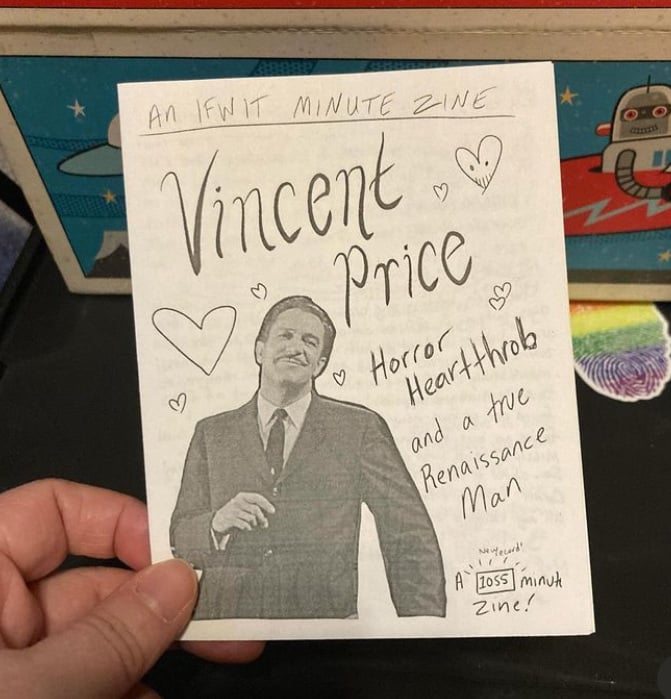 An IFWIT MINUTE ZINE
Vincent
Price
Horror
Heartthrob
and a true
Renaissance
Man
New record!
A 1055 minute
Zine!